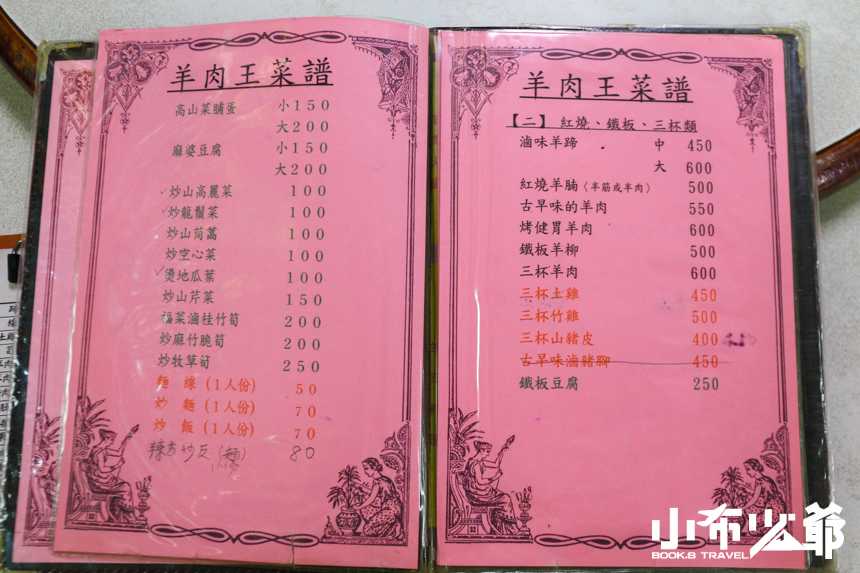 羊肉王菜譜
高山菜脯蛋 小150
大200
麻婆豆腐 小150
大200
✓炒山高麗菜 100
✓炒龍鬚菜 100
炒山茼蒿 100
炒空心菜 100
✓燙地瓜葉 100
炒山芹菜 150
福菜滷桂竹筍 200
炒麻竹脆筍 200
炒牧草筍 250
麵 線(1人份) 50
炒 麵(1人份) 70
炒 飯(1人份) 70
80
羊肉王菜譜
【二】紅燒、鐵板、三杯類
滷味羊蹄 中 450
大 600
紅燒羊腩〈半筋或半肉〉 500
古早味的羊肉 550
烤健胃羊肉 600
鐵板羊柳 500
三杯羊肉 600
三杯土雞 450
三杯竹雞 500
三杯山豬皮 400
古早味滷豬腳 450
鐵板豆腐 250
小布少爺
BOOK.B TRAVEL